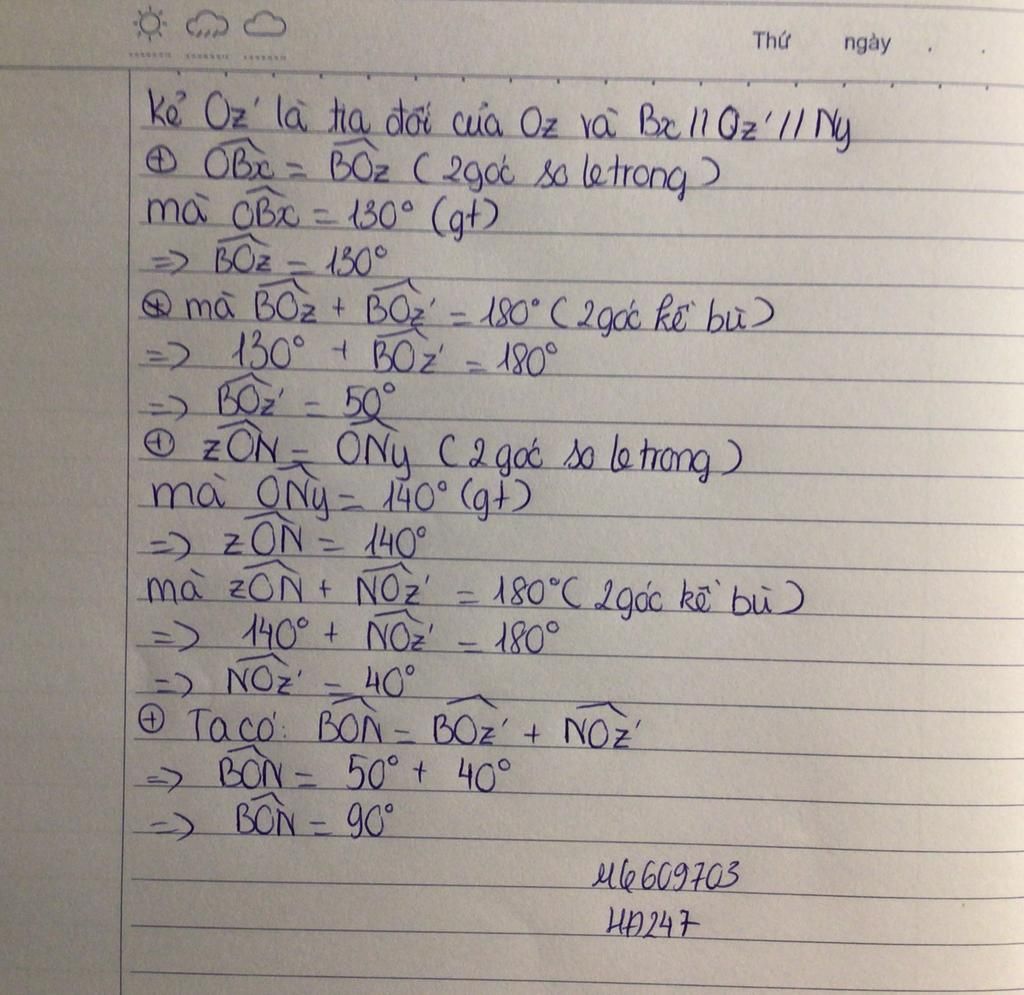 Thứ ngày . .
Kẻ Oz' là tia đối của Oz và Bx // Oz' // Ny
⊕ OBx̂ = BOẑ (2 góc so le trong)
mà OBx̂ = 130° (gt)
=> BOẑ = 130°
⊕ mà BOẑ + BOẑ' = 180° (2 góc kề bù)
=> 130° + BOẑ' = 180°
=> BOẑ' = 50°
⊕ zON̂ = ONŷ (2 góc so le trong)
mà ONŷ = 140° (gt)
=> zON̂ = 140°
mà zON̂ + NOẑ' = 180° (2 góc kề bù)
=> 140° + NOẑ' = 180°
=> NOẑ' = 40°
⊕ Ta có: BON̂ = BOẑ' + NOẑ'
=> BON̂ = 50° + 40°
=> BON̂ = 90°
HA247